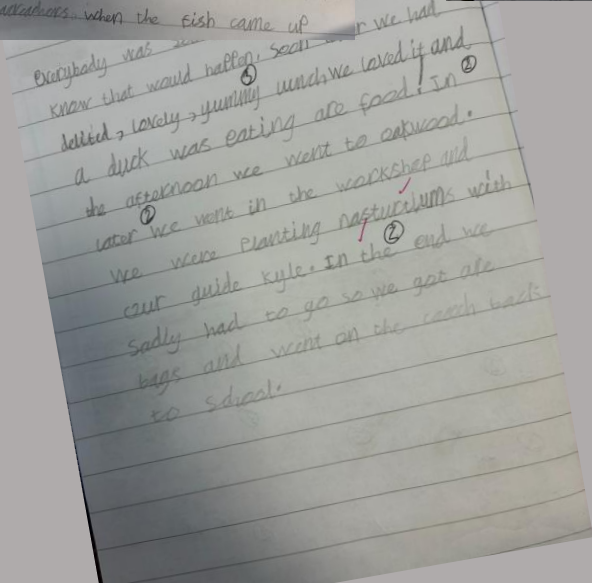 when the fish came up
Everybody was
know that would happen. Soon we had
delited, lovely, yummy lunch we loved it and
③
a duck was eating are food! In
②
the afternoon we went to oakwood.
②
later we went in the workshop and
we were planting nasturtiums with
②
our guide kyle. In the end we
sadly had to go so we got are
bags and went on the coach back
to school.